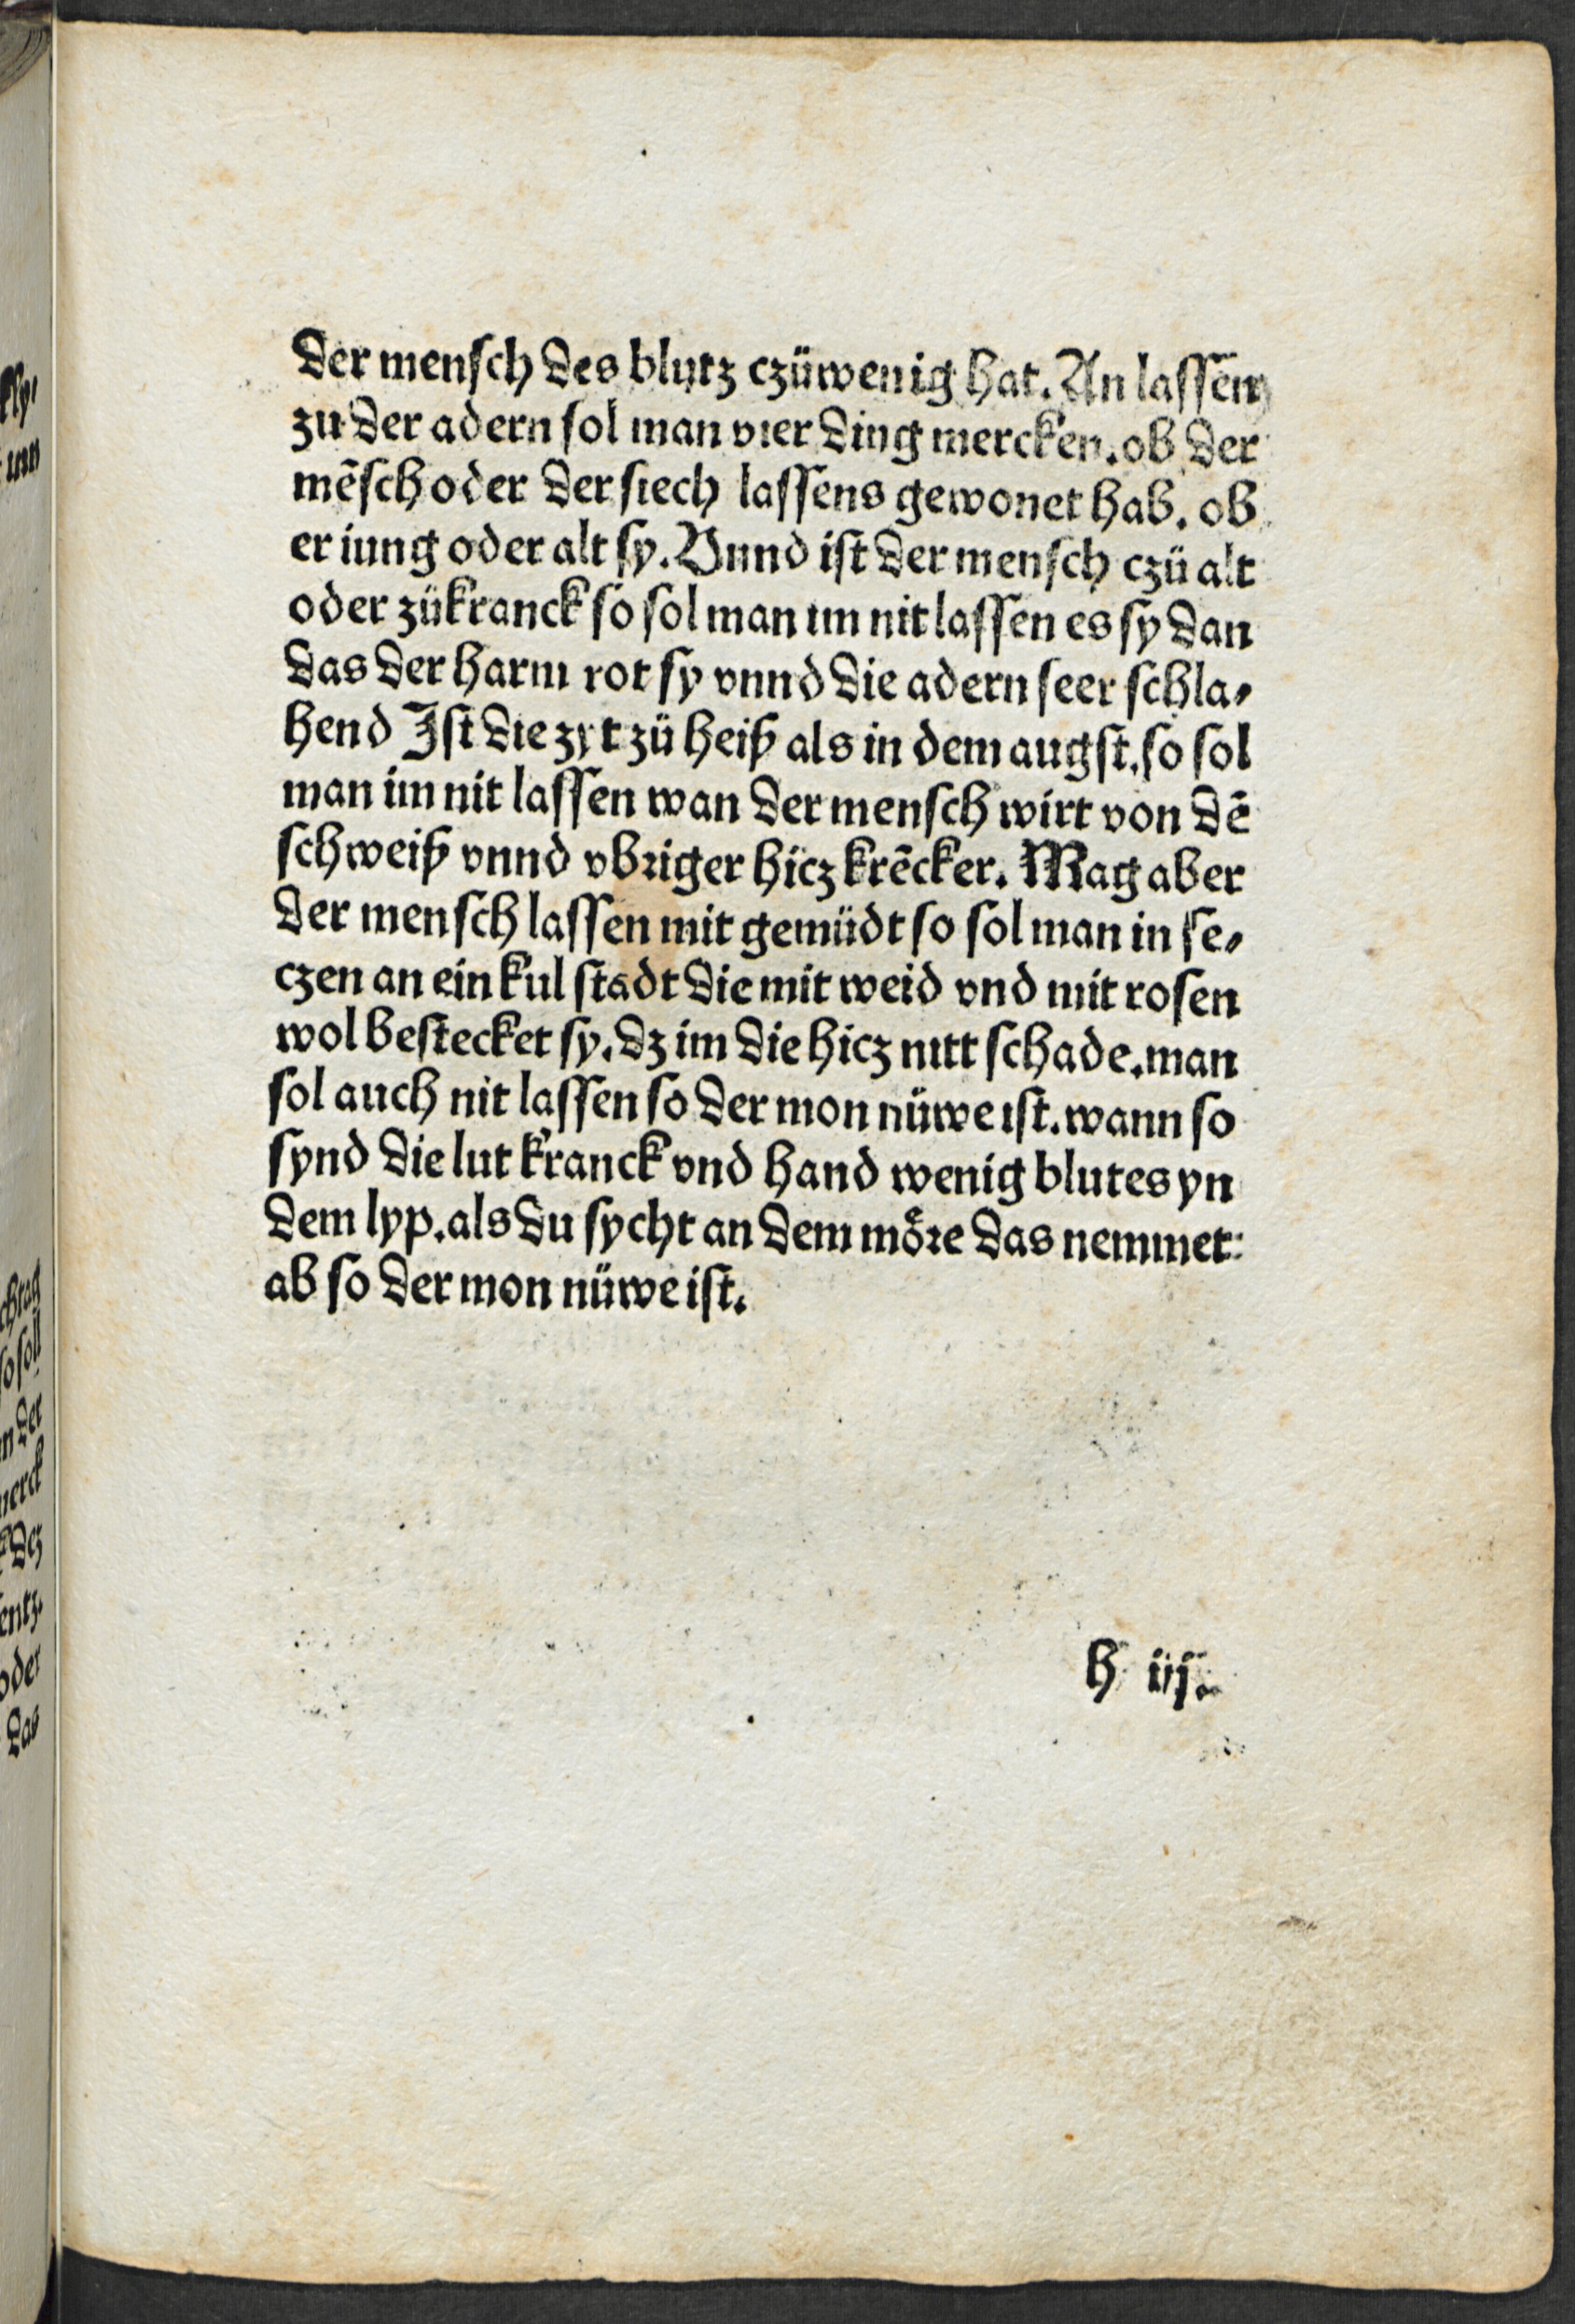 der mensch des blutz czüwenig hat. An lassen
zu der adern sol man vier ding mercken. ob der
mēsch oder der siech lassens gewonet hab. ob
er iung oder alt sy. Vnnd ist der mensch czü alt
oder zükranck so sol man im nit lassen es sy dan
das der harm rot sy vnnd die adern seer schla⸗
hend Ist die zyt zü heiß als in dem augst. so sol
man im nit lassen wan der mensch wirt von dē
schweiß vnnd vbriger hicz krēcker. Mag aber
der mensch lassen mit gemüdt so sol man in se⸗
czen an ein kul stadt die mit weid vnd mit rosen
wol bestecket sy. dz im die hicz nitt schade. man
sol auch nit lassen so der mon nüwe ist. wann so
synd die lut kranck vnd hand wenig blutes yn
dem lyp. als du sycht an dem moͤre das nemmet
ab so der mon nüwe ist.
h iij.